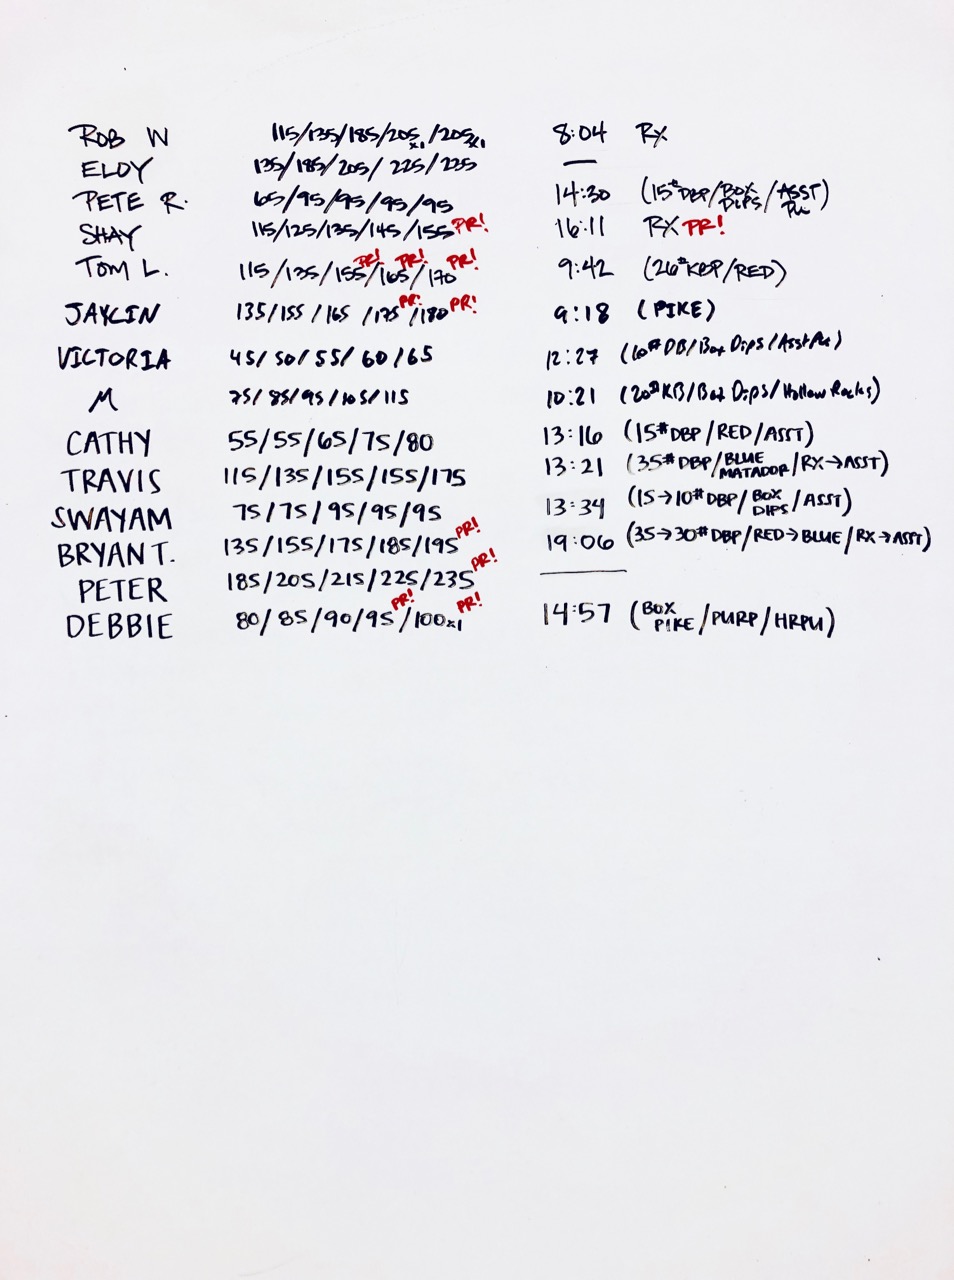 ROB W 115/135/185/205x1/205x1 8:04 RX
ELOY 135/185/205/225/235 —
PETE R. 65/95/95/95/95 14:30 (15# DBP/BOX DIPS/ASST PU)
SHAY 115/125/135/145/155 PR! 16:11 RX PR!
TOM L. 115/135/155 PR!/165 PR!/170 PR! 9:42 (26# KBP/RED)
JAYLIN 135/155/165/175 PR!/180 PR! 9:18 (PIKE)
VICTORIA 45/50/55/60/65 12:27 (10# DB/Box Dips/Asst Pu)
M 75/85/95/105/115 10:21 (20# KB/Box Dips/Hollow Rocks)
CATHY 55/55/65/75/80 13:16 (15# DBP/RED/ASST)
TRAVIS 115/135/155/155/175 13:21 (35# DBP/BLUE MATADOR/RX→ASST)
SWAYAM 75/75/95/95/95 13:34 (15→10# DBP/BOX DIPS/ASST)
BRYAN T. 135/155/175/185/195 PR! 19:06 (35→30# DBP/RED→BLUE/RX→ASST)
PETER 185/205/215/225/235 PR! —
DEBBIE 80/85/90/95 PR!/100x1 PR! 14:57 (BOX PIKE/PURP/HRPU)